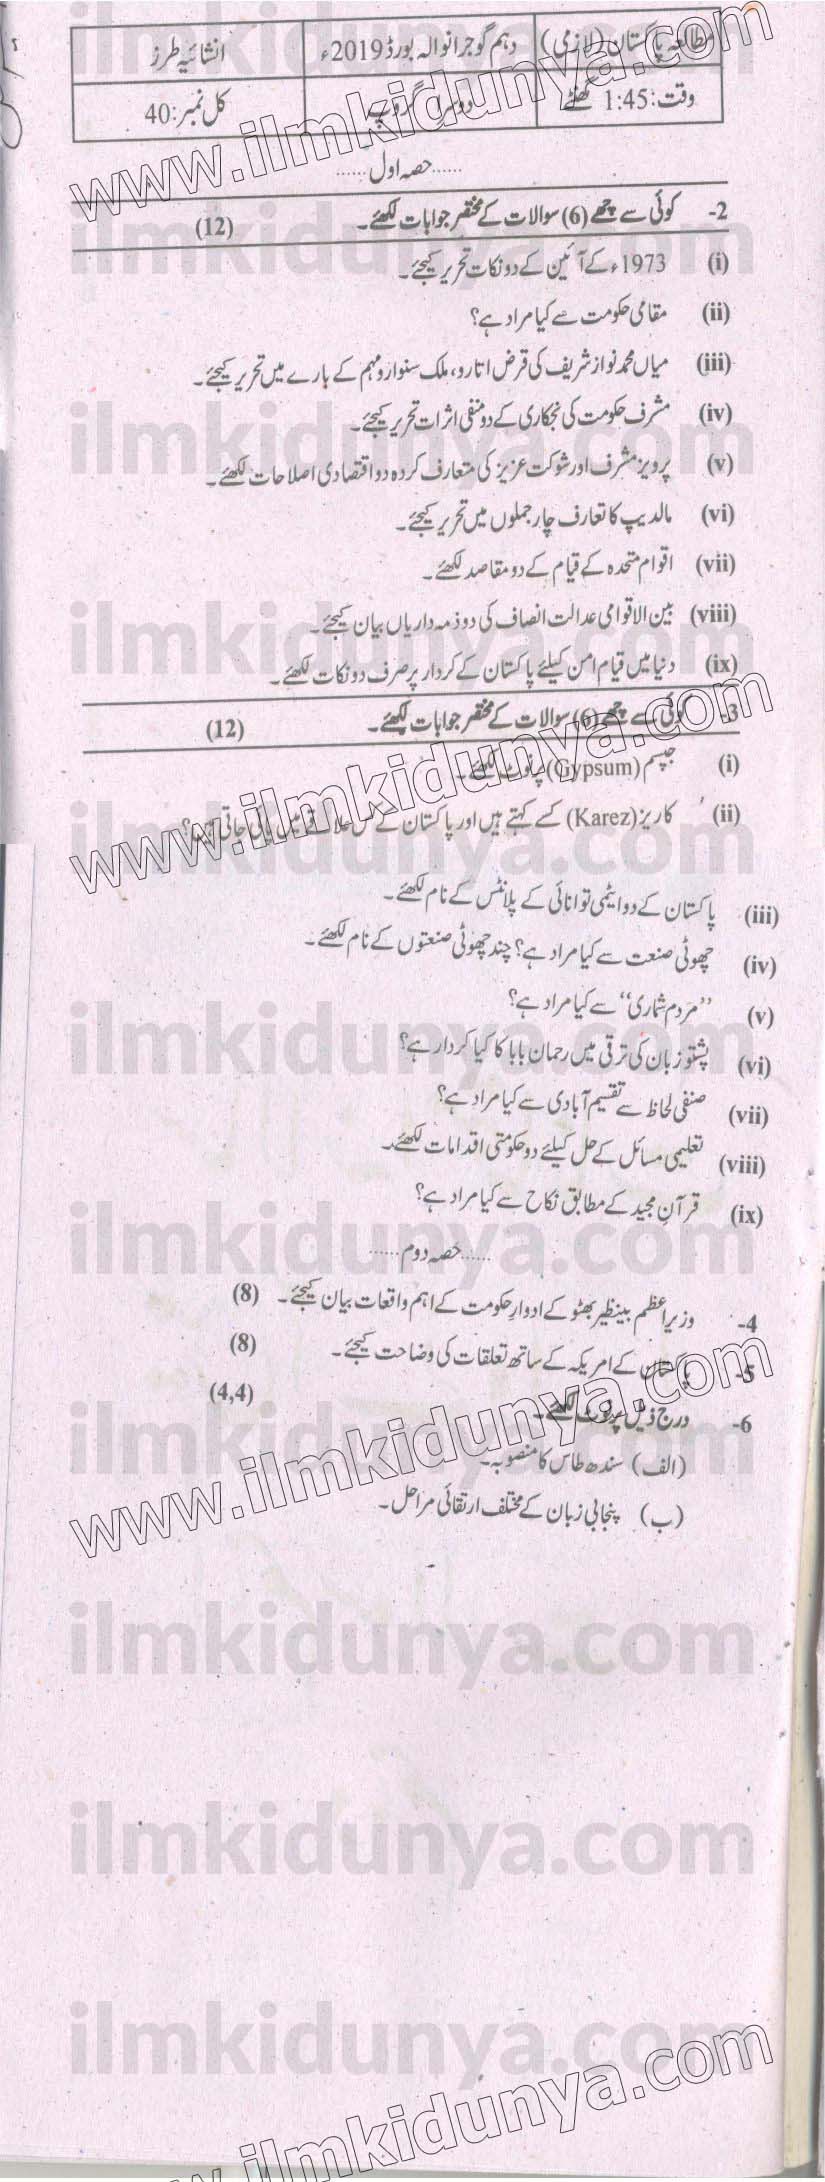 مطالعہ پاکستان (لازمی) دہم گوجرانوالہ بورڈ 2019ء انشائیہ طرز
وقت: 1:45 گھنٹے دوسرا گروپ کل نمبر: 40
......حصہ اول......
2- کوئی سے چھے (6) سوالات کے مختصر جوابات لکھئے۔ (12)
(i) 1973ء کے آئین کے دو نکات تحریر کیجئے۔
(ii) مقامی حکومت سے کیا مراد ہے؟
(iii) میاں محمد نواز شریف کی قرض اتارو، ملک سنوارو مہم کے بارے میں تحریر کیجئے۔
(iv) مشرف حکومت کی نجکاری کے دو منفی اثرات تحریر کیجئے۔
(v) پرویز مشرف اور شوکت عزیز کی متعارف کردہ دو اقتصادی اصلاحات لکھئے۔
(vi) مالدیپ کا تعارف چار جملوں میں تحریر کیجئے۔
(vii) اقوام متحدہ کے قیام کے دو مقاصد لکھئے۔
(viii) بین الاقوامی عدالت انصاف کی دو ذمہ داریاں بیان کیجئے۔
(ix) دنیا میں قیام امن کیلئے پاکستان کے کردار پر صرف دو نکات لکھئے۔
3- کوئی سے چھے (6) سوالات کے مختصر جوابات لکھئے۔ (12)
(i) جپسم (Gypsum) پر نوٹ لکھئے۔
(ii) کاریز (Karez) کسے کہتے ہیں اور پاکستان کے کس علاقے میں پائی جاتی ہیں؟
(iii) پاکستان کے دو ایٹمی توانائی کے پلانٹس کے نام لکھئے۔
(iv) چھوٹی صنعت سے کیا مراد ہے؟ چند چھوٹی صنعتوں کے نام لکھئے۔
(v) ”مردم شماری“ سے کیا مراد ہے؟
(vi) پشتو زبان کی ترقی میں رحمان بابا کا کیا کردار ہے؟
(vii) صنفی لحاظ سے تقسیم آبادی سے کیا مراد ہے؟
(viii) تعلیمی مسائل کے حل کیلئے دو حکومتی اقدامات لکھئے۔
(ix) قرآن مجید کے مطابق نکاح سے کیا مراد ہے؟
......حصہ دوم......
4- وزیراعظم بینظیر بھٹو کے ادوار حکومت کے اہم واقعات بیان کیجئے۔ (8)
5- پاکستان کے امریکہ کے ساتھ تعلقات کی وضاحت کیجئے۔ (8)
6- درج ذیل پر نوٹ لکھئے۔ (4,4)
(الف) سندھ طاس کا منصوبہ۔
(ب) پنجابی زبان کے مختلف ارتقائی مراحل۔
www.ilmkidunya.com
ilmkidunya.com